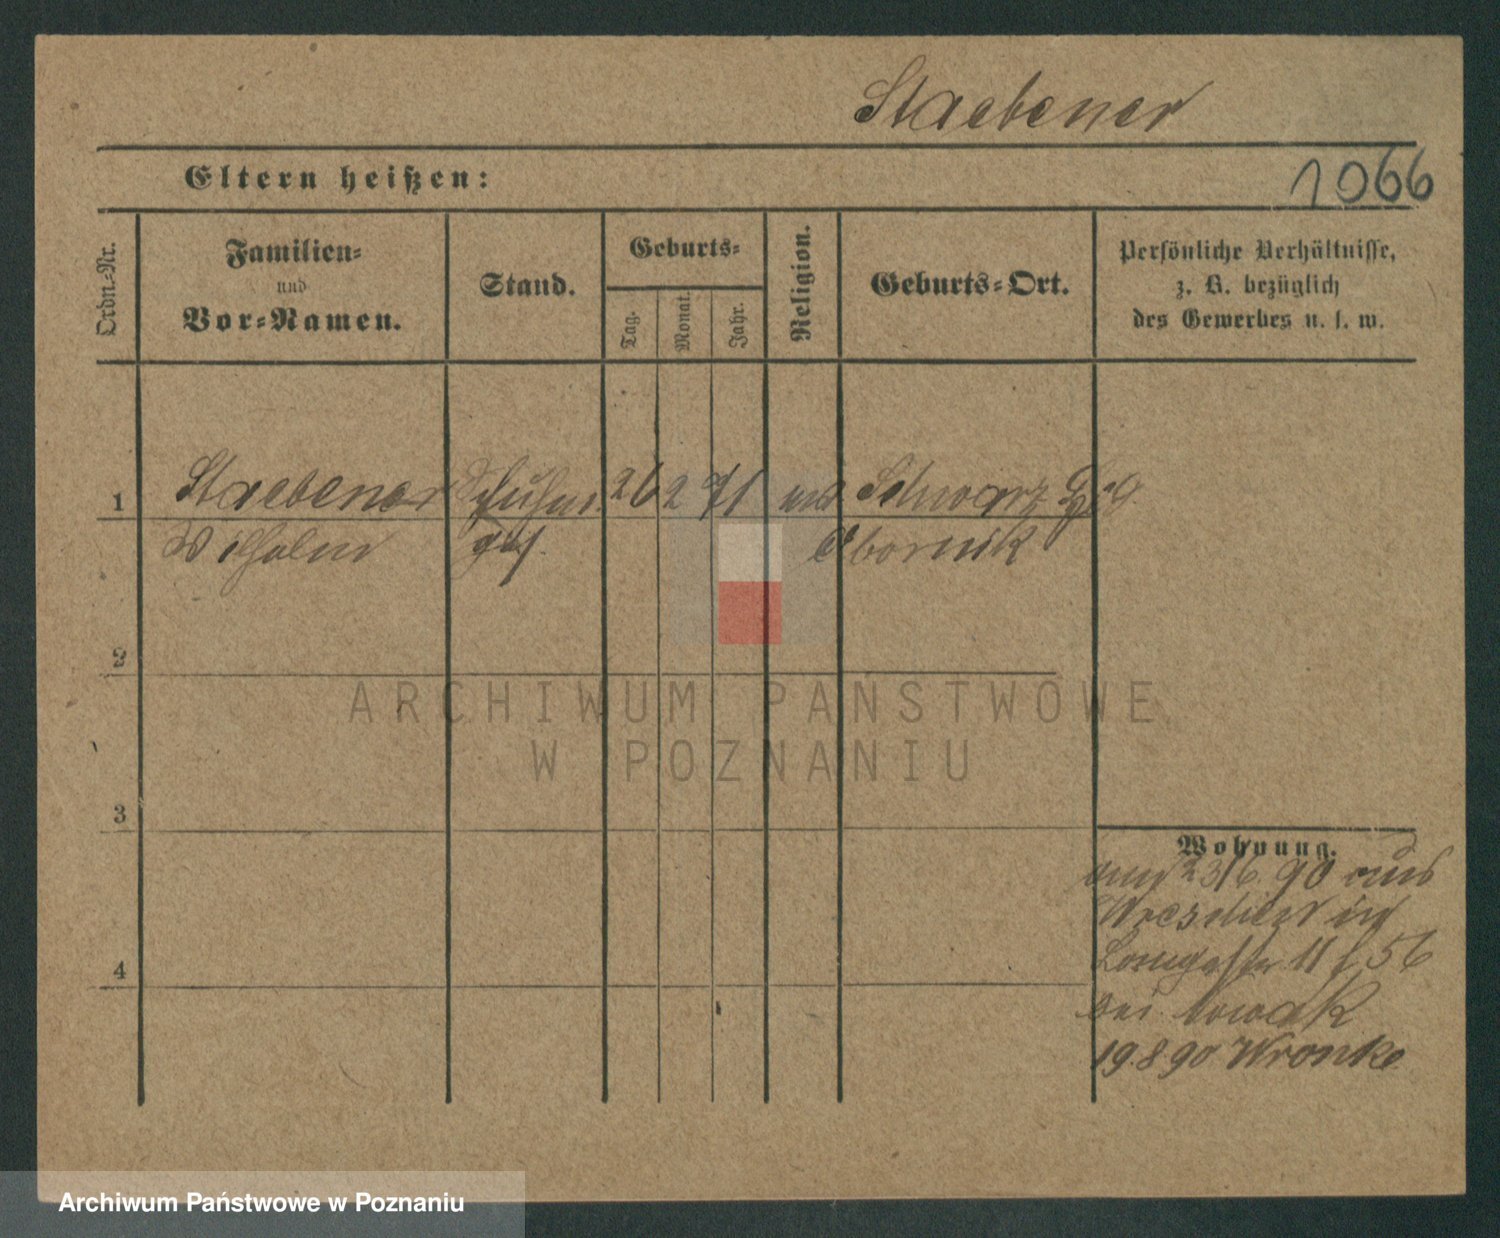 Staebener
Eltern heißen:
1066
Ordn.-Nr.
Familien-
und
Vor-Namen.
Stand.
Geburts-
Tag.
Monat.
Jahr.
Religion.
Geburts-Ort.
Persönliche Verhältnisse,
z. B. bezüglich
des Gewerbes u. s. w.
1
Staebener
26
2
71
Schwarz
Wilhelm
Obornik
2
ARCHIWUM PAŃSTWOWE
W POZNANIU
3
Wohnung.
23/6 90 aus
Wreschen in
11 56
4
bei Nowak
19.8 90 Wronke
Archiwum Państwowe w Poznaniu